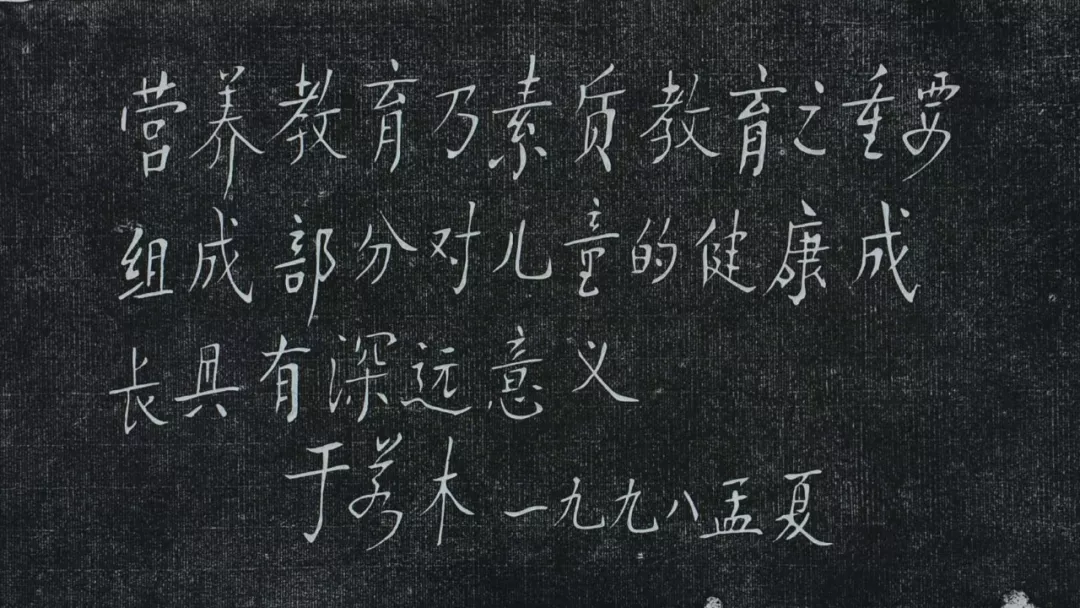 营养教育乃素质教育之重要
组成部分对儿童的健康成
长具有深远意义
于若木 一九九八孟夏